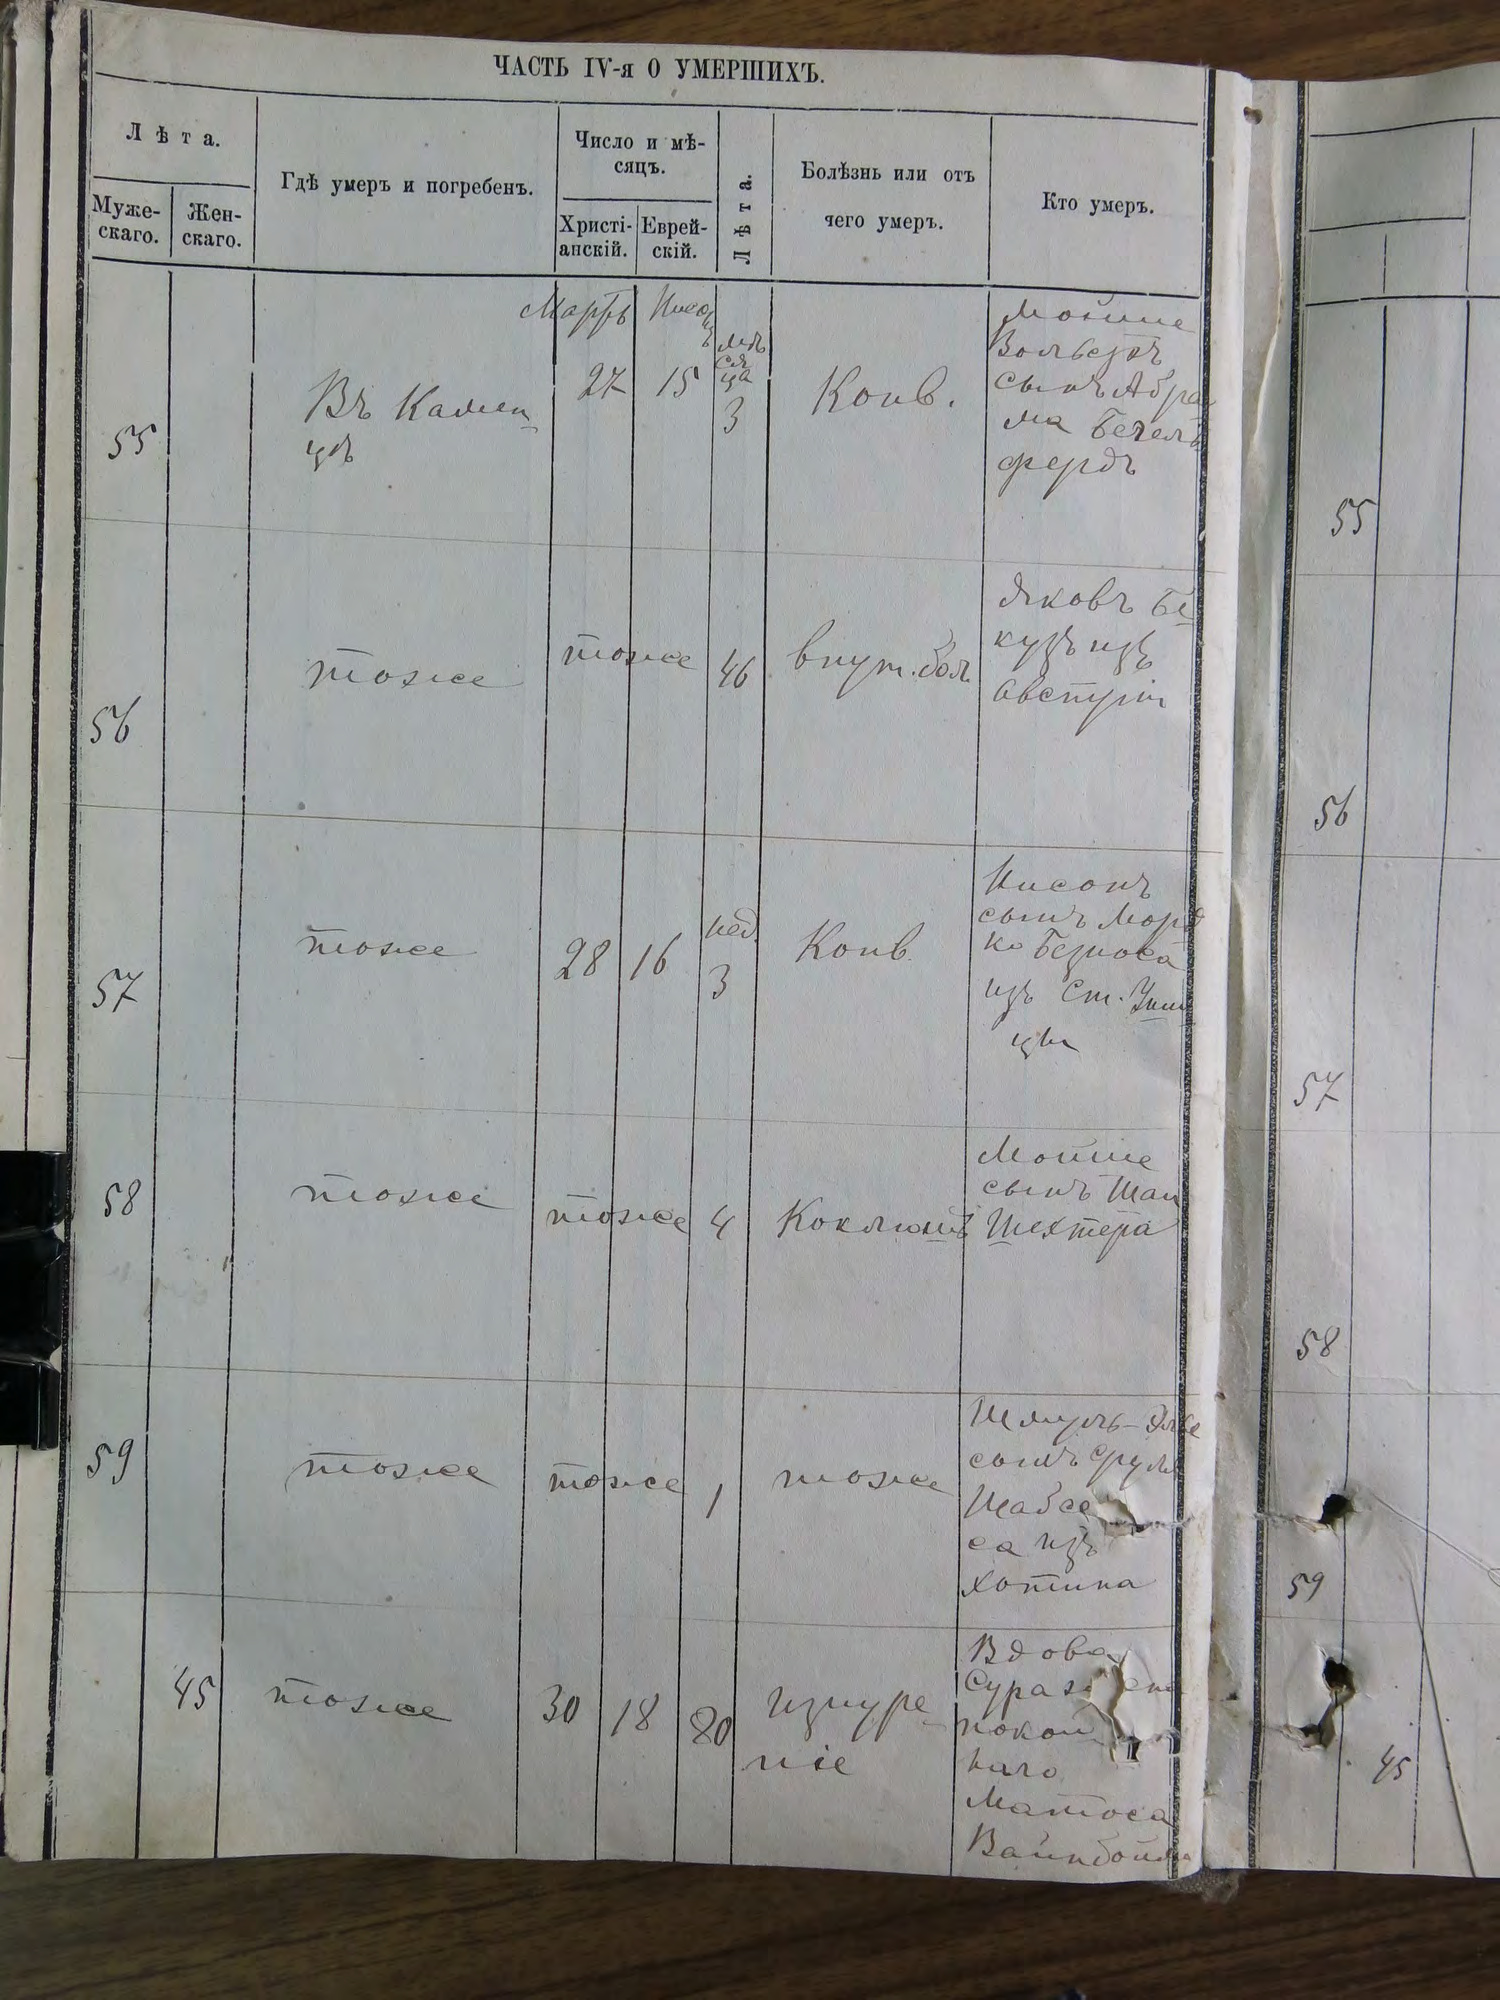 ЧАСТЬ IV-я О УМЕРШИХЪ.
Лѣта.
Муже-
скаго.
Жен-
скаго.
Гдѣ умеръ и погребенъ.
Число и мѣ-
сяцъ.
Христі-
анскій.
Еврей-
скій.
Лѣта.
Болѣзнь или отъ
чего умеръ.
Кто умеръ.
Мартъ
мѣ
ся
ца
55
Въ Камен
цѣ
27
15
3
Конв.
Мойше
Вольфъ
сынъ Абра
ма
фердъ
55
56
тоже
тоже
46
внут. бол
Яковъ Бе
кузъ изъ
Австріи
56
57
тоже
28
16
нед.
3
Конв
Нисонъ
сынъ Морд
ко Безноса
изъ Ст. Уши
цы
57
58
тоже
тоже
4
Коклюшъ
Мойше
сынъ
Шехтера
58
59
тоже
тоже
1
тоже
Шмуль-
сынъ Сруля
Шабсе
са изъ
Хотина
59
45
тоже
30
18
80
изнуре
ніе
Вдова
Сура
покой
наго
Матоса
Вайнбойма
45